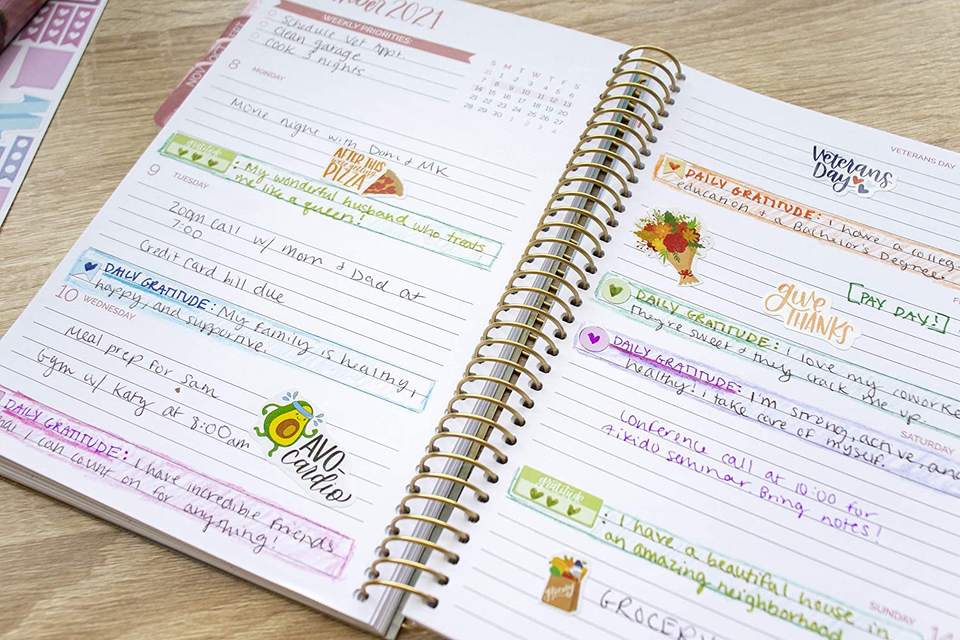 2021
WEEKLY PRIORITIES:
Schedule Vet Appt.
Clean garage
Cook 3 nights
S M T W T F S
7 8 9 10 11 12 13
14 15 16 17 18 19 20
21 22 23 24 25 26 27
28 29 30
NOV
8 MONDAY
Movie night with Dom & MK
AFTER THIS
PIZZA
gratitude
: My wonderful husband who treats
me like a queen!
9 TUESDAY
Zoom call w/ Mom & Dad at
7:00
Credit Card bill due
DAILY GRATITUDE: My family is healthy,
happy, and supportive.
10 WEDNESDAY
Meal prep for Sam
Gym w/ Katy at 8:00am
AVO-
Cardio
DAILY GRATITUDE: I have incredible friends
that I can count on for
anything!
VETERANS DAY
Veterans
Day
DAILY GRATITUDE: I have a colleg
education & a Bachelor's Degree!
give
THANKS
[PAY DAY!]
F
DAILY GRATITUDE: I love my coworke
They're sweet & they crack me up.
DAILY GRATITUDE: I'm strong, active, and
healthy! I take care of myself.
SATURDAY
Conference call at 10:00 for
aikido seminar. Bring notes!
gratitude
: I have a beautiful house in
an amazing neighborhood
SUNDAY
14
GROCERY